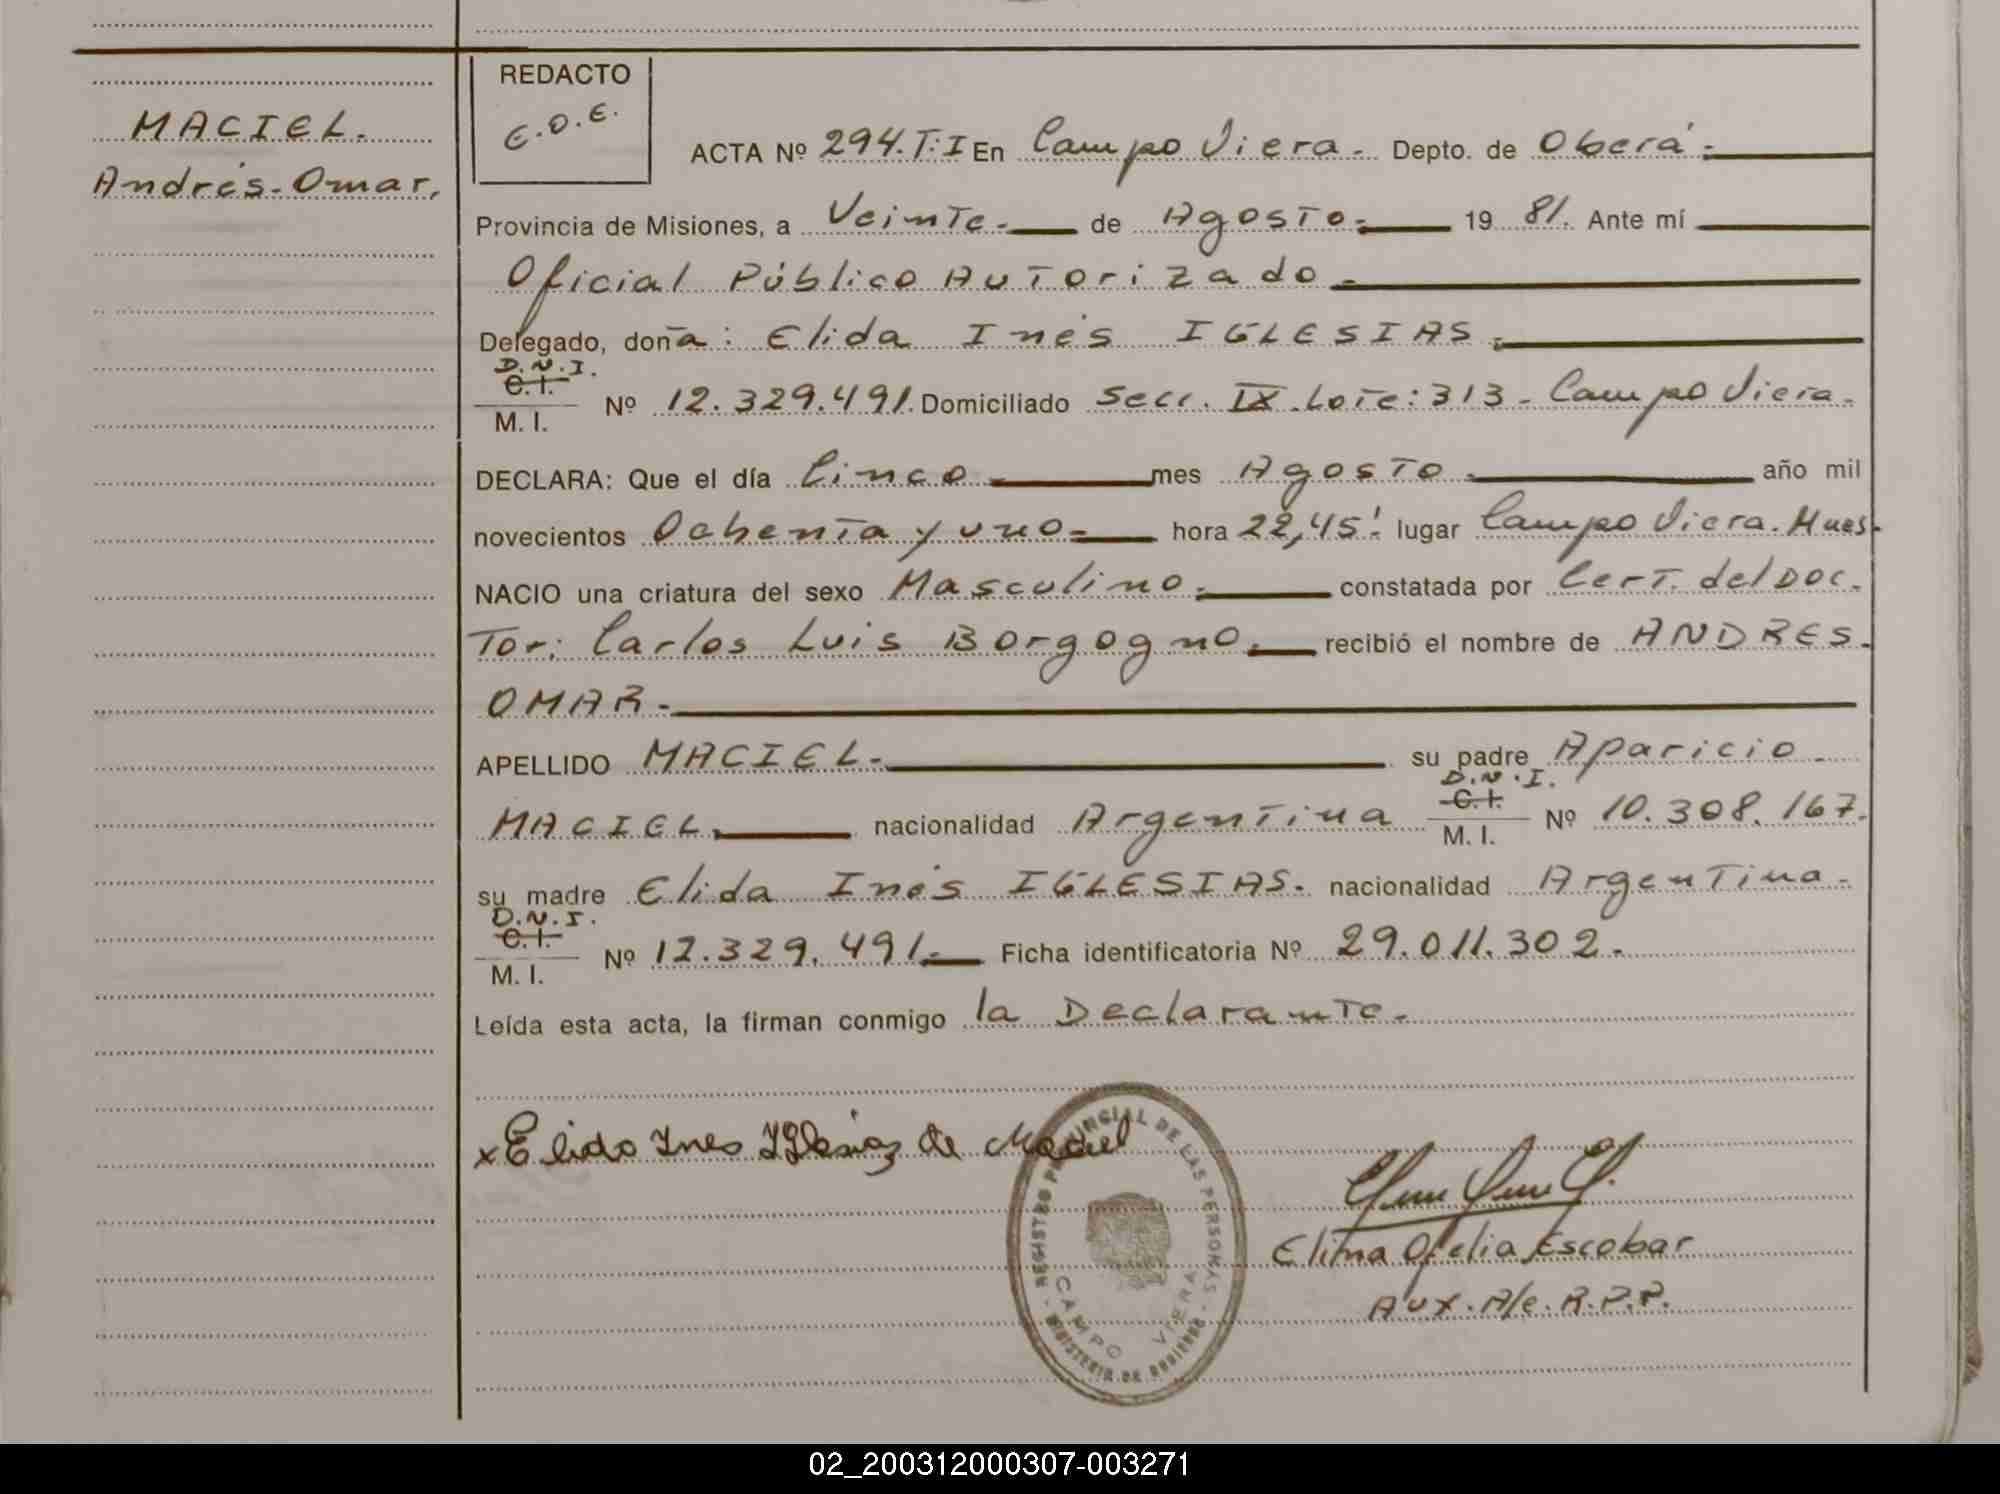 MACIEL.
Andrés-Omar,
REDACTO
E.O.E.
ACTA Nº 294.T:I En Campo Viera.- Depto. de Oberá.-
Provincia de Misiones, a Veinte.- de Agosto.- 1981. Ante mí
Oficial Público Autorizado.-
Delegado, doña: Elida Inés IGLESIAS.-
D.N.I.
C.I.
M. I. Nº 12.329.491. Domiciliado Secc. IX. Lote: 313- Campo Viera.-
DECLARA: Que el día Cinco.- mes Agosto.- año mil
novecientos Ochenta y uno.- hora 22,45'. lugar Campo Viera. Mnes.-
NACIO una criatura del sexo Masculino.- constatada por Cert. del Doc-
tor: Carlos Luis Borgogno.- recibió el nombre de ANDRES-
OMAR.-
APELLIDO MACIEL.- su padre Aparicio
MACIEL.- nacionalidad Argentina D.N.I. C.I. M. I. Nº 10.308.167.
su madre Elida Inés IGLESIAS.- nacionalidad Argentina.-
D.N.I.
C.I.
M. I. Nº 12.329.491.- Ficha identificatoria Nº 29.011.302.-
Leída esta acta, la firman conmigo la Declarante.-
x Elida Ines Iglesias de Maciel
REGISTRO PROVINCIAL DE LAS PERSONAS
CAMPO VIERA
- MINISTERIO DE GOBIERNO -
Elima Ofelia Escobar
Aux. A/c. R.P.P.
02_200312000307-003271